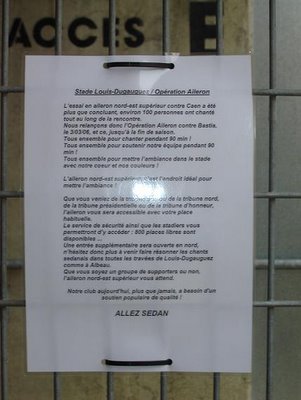 ACCES E
Stade Louis-Dugauguez / Opération Aileron
L'essai en aileron nord-est supérieur contre Caen a été
plus que concluant, environ 100 personnes ont chanté
tout au long de la rencontre.
Nous relançons donc l'Opération Aileron contre Bastia,
le 3/03/06, et ce, jusqu'à la fin de saison.
Tous ensemble pour chanter pendant 90 min !
Tous ensemble pour soutenir notre équipe pendant 90
min !
Tous ensemble pour mettre l'ambiance dans le stade
avec notre coeur et nos couleurs !
L'aileron nord-est supérieur, c'est l'endroit idéal pour
mettre l'ambiance !
Que vous veniez de la tribune nord,
de la tribune présidentielle ou de la tribune d'honneur,
l'aileron vous sera accessible avec votre place
habituelle.
Le service de sécurité ainsi que les stadiers vous
permettront d'y accéder : 800 places libres sont
disponibles ...
Une entrée supplémentaire sera ouverte en nord,
n'hésitez donc plus à venir faire résonner les chants
sedanais dans toutes les travées de Louis-Dugauguez
comme à Albeau.
Que vous soyez un groupe de supporters ou non,
l'aileron nord-est supérieur vous attend.
Notre club aujourd'hui, plus que jamais, a besoin d'un
soutien populaire de qualité !
ALLEZ SEDAN